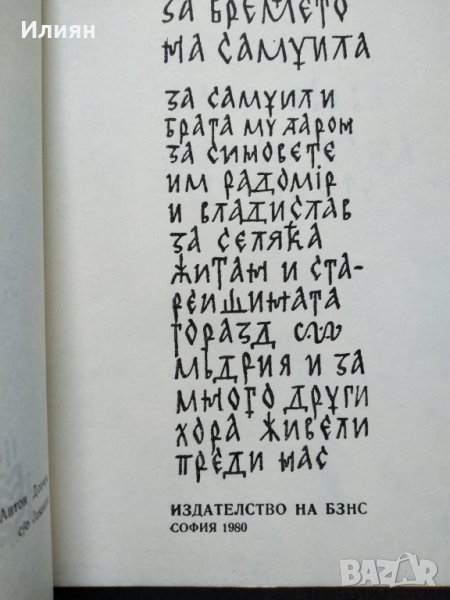 Илиян
за времето
на самуила
за самуил и
брата му арон
за синовете
им радомір
и владислав
за селяка
житан и ста-
реишината
горазд
мъдрия и за
много други
хора живели
преди нас
ИЗДАТЕЛСТВО НА БЗНС
СОФИЯ 1980
Антон
BAZAR